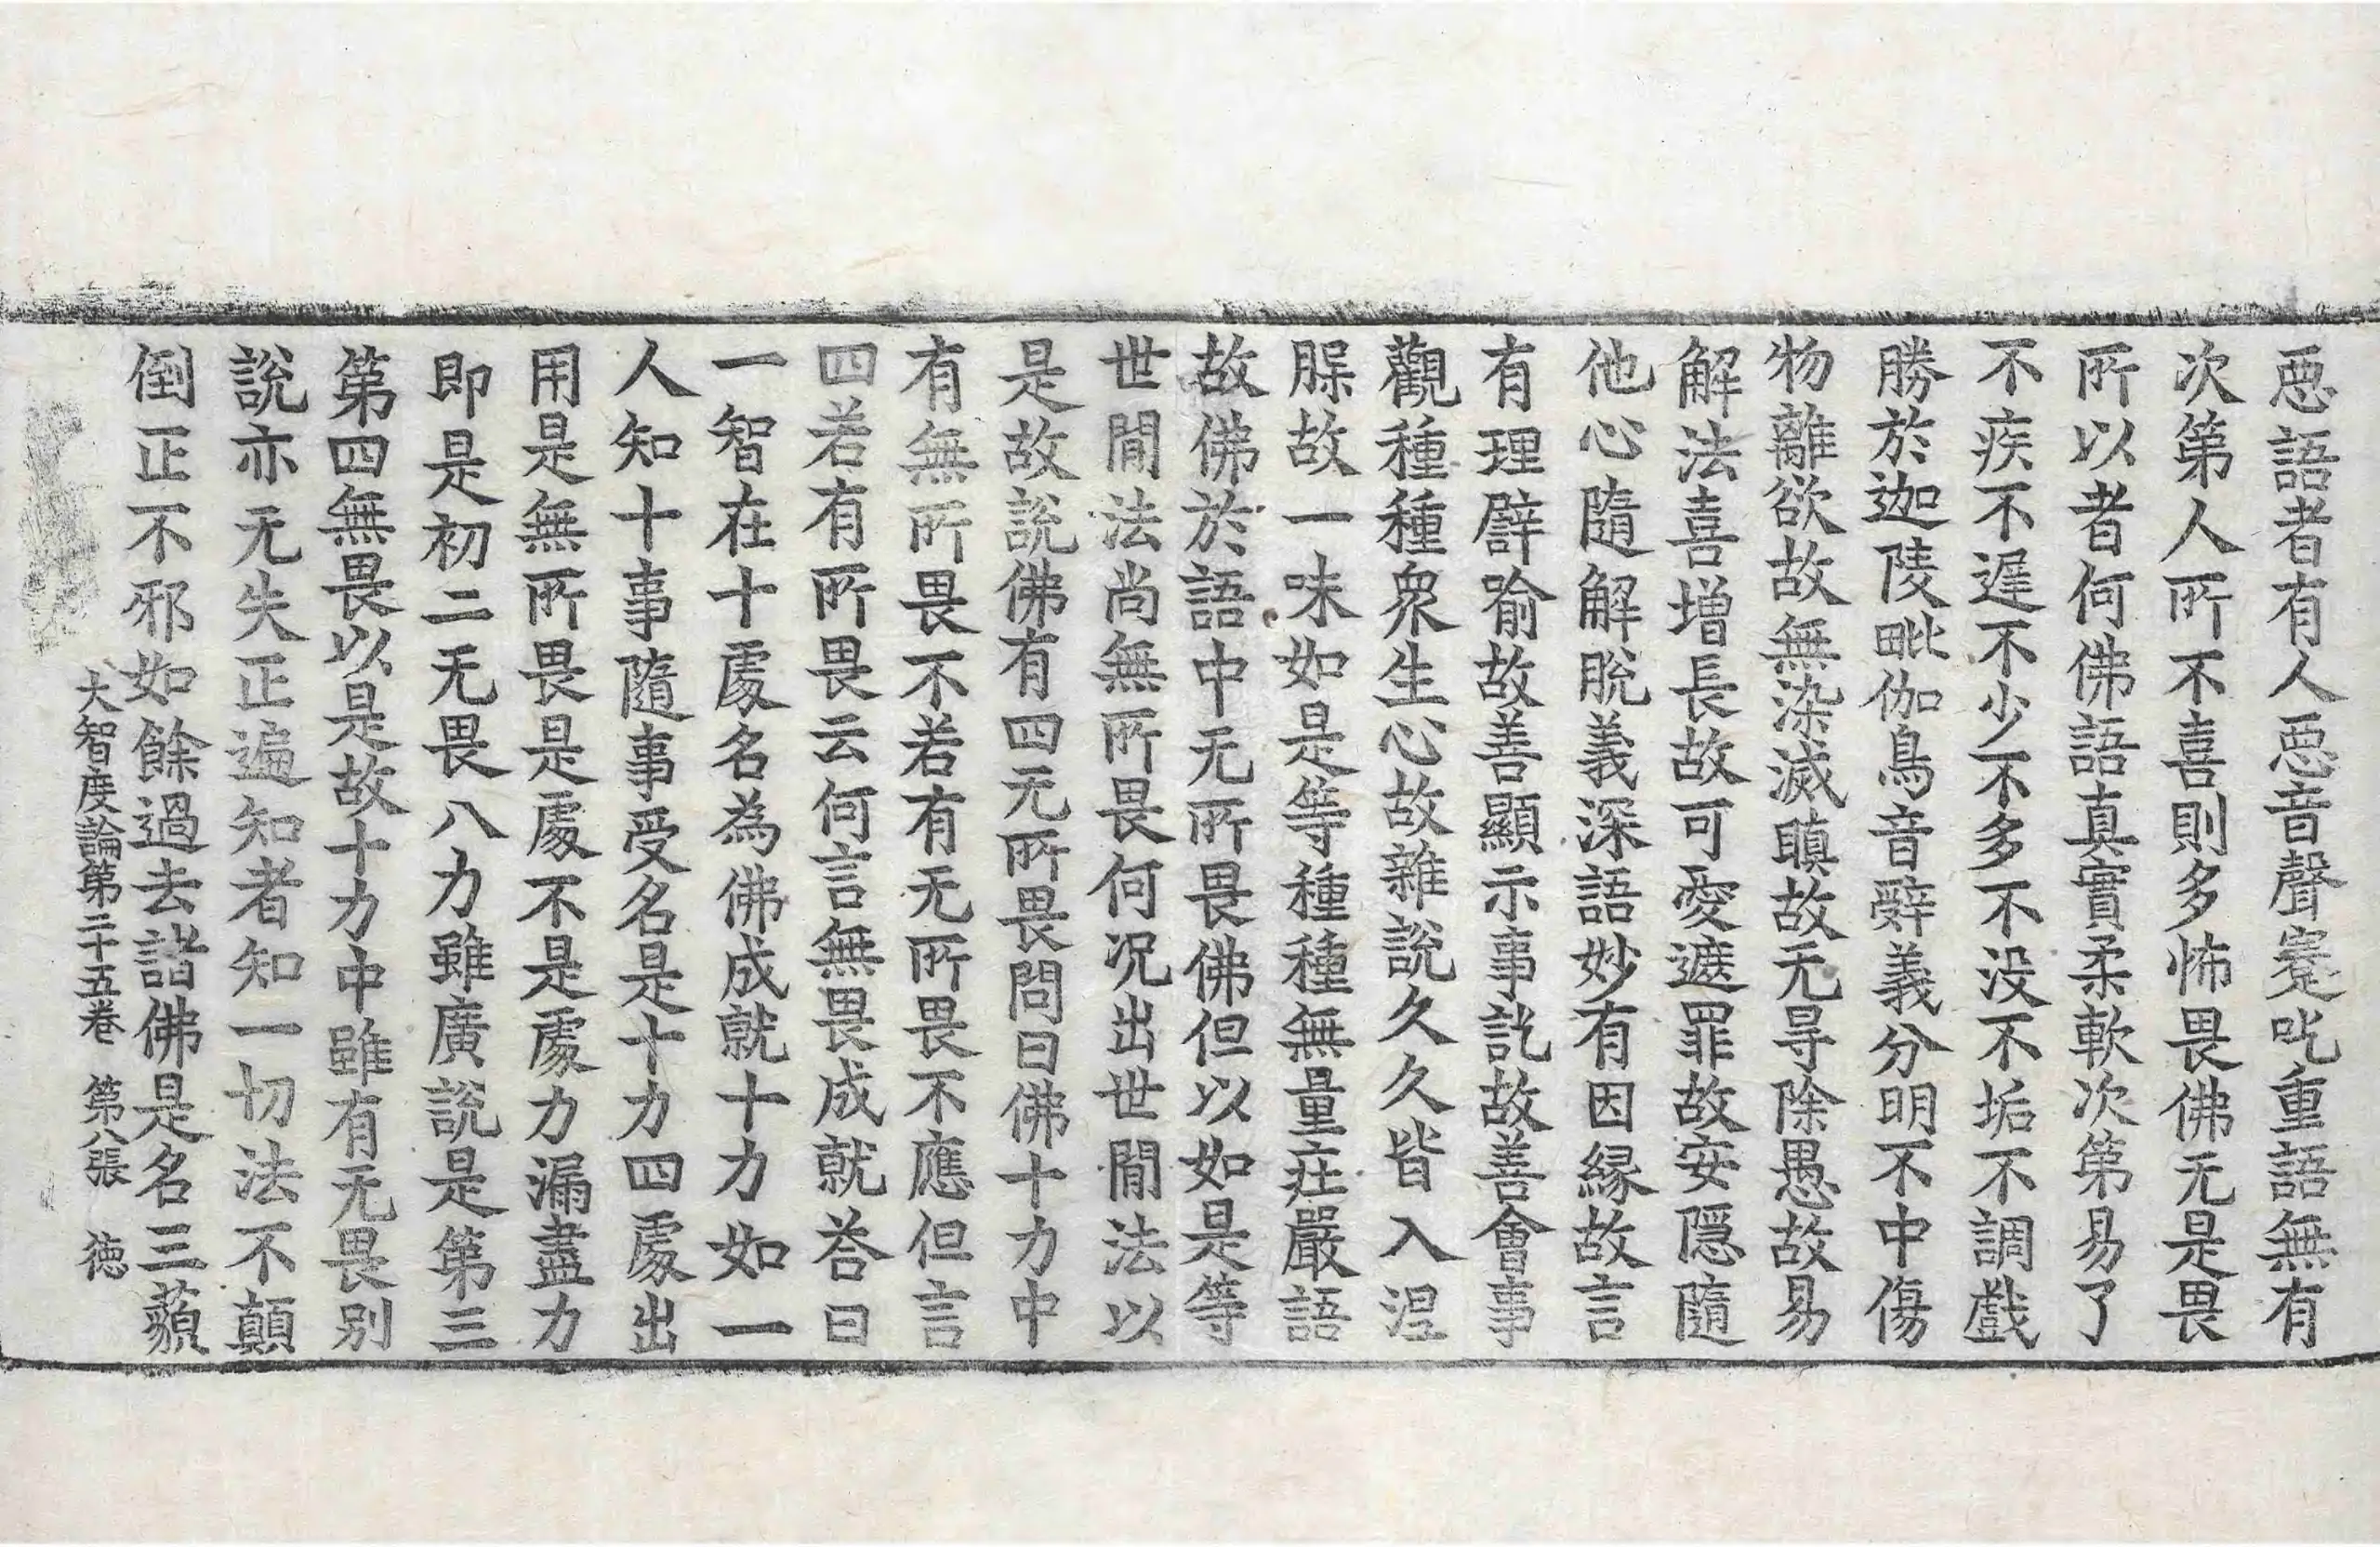 惡語者有人惡音聲蹇吃重語無有
次第人所不喜則多怖畏佛无是畏
所以者何佛語真實柔軟次第易了
不疾不遲不少不多不没不垢不調戲
勝於迦陵毗伽鳥音辭義分明不中傷
物離欲故無染滅瞋故无㝵除愚故易
解法喜增長故可愛遮罪故安隱隨
他心隨解脫義深語妙有因緣故言
有理譬喻故善顯示事訖故善會事
觀種種衆生心故雜說久久皆入涅
䏶故一味如是等種種無量莊嚴語
故佛於語中无所畏佛但以如是等
世間法尚無所畏何况出世間法以
是故說佛有四无所畏問曰佛十力中
有無所畏不若有无所畏不應但言
四若有所畏云何言無畏成就荅曰
一智在十處名為佛成就十力如一
人知十事隨事受名是十力四處出
用是無所畏是處不是處力漏盡力
即是初二无畏八力雖廣說是第三
第四無畏以是故十力中雖有无畏別
說亦无失正遍知者知一切法不顛
倒正不邪如餘過去諸佛是名三藐
大智度論第二十五卷　第八張　德